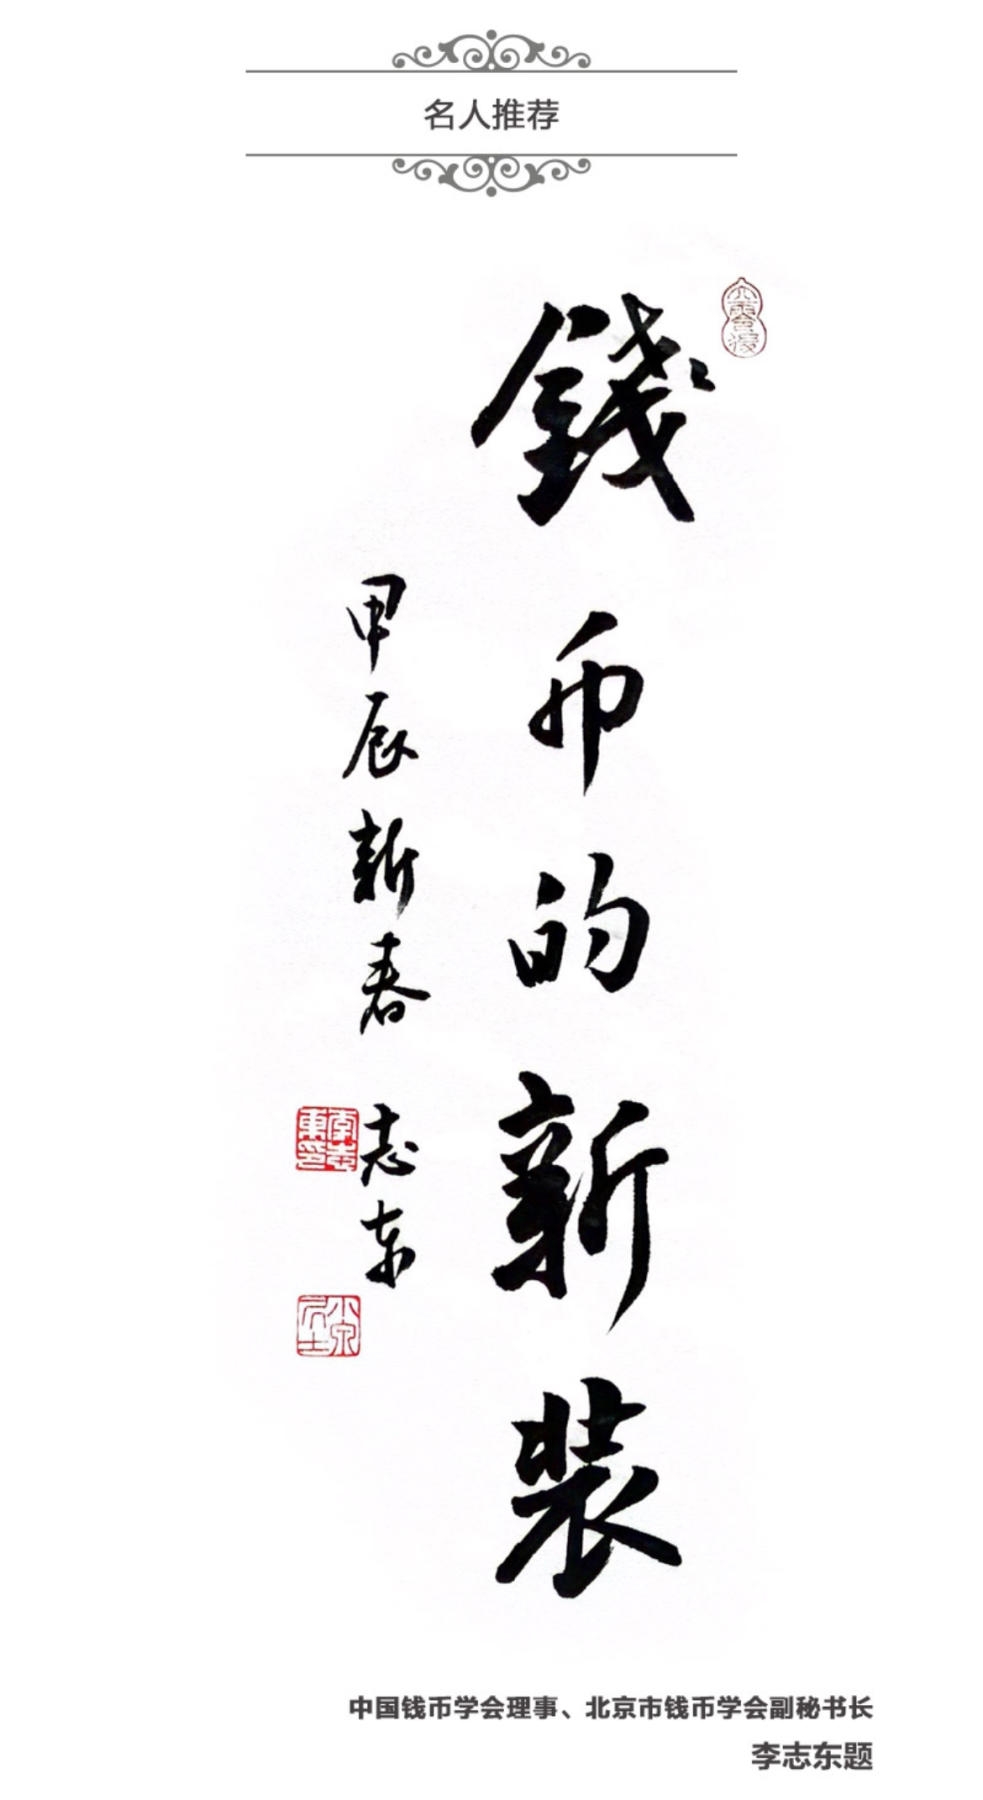 名人推荐
錢币的新装
甲辰新春 志东
李志東印
中国钱币学会理事、北京市钱币学会副秘书长
李志东题